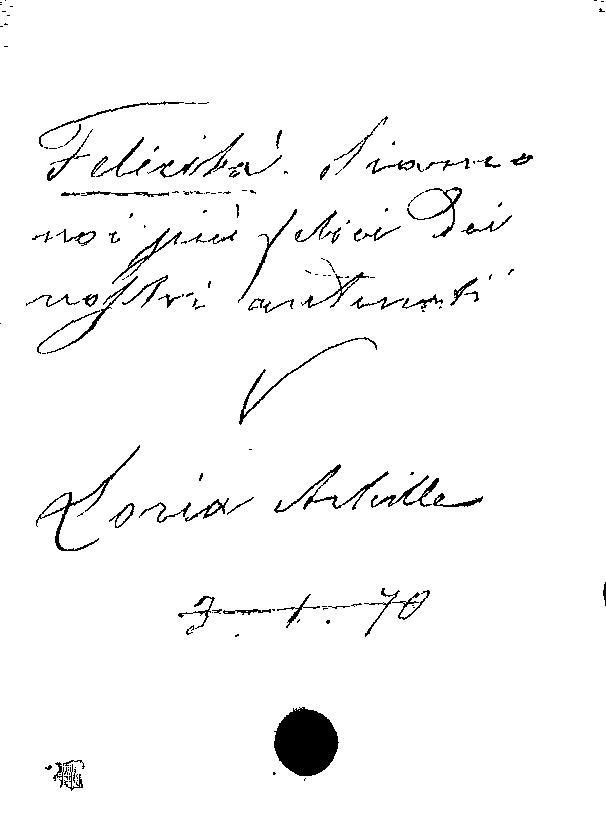 Felicità. Siamo
noi più felici dei
nostri antenati
Loria Achille
3. 1. 70